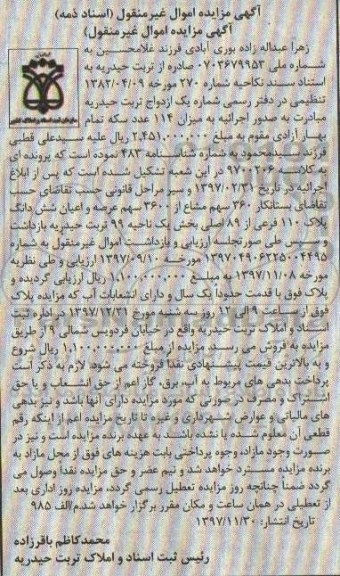 آگهی مزایده اموال غیرمنقول (اسناد ذمه)
آگهی مزایده اموال غیرمنقول)
زهرا عبداله زاده بوری آبادی فرزند غلامحسین به
شماره ملی ۰۷۰۳۶۷۹۹۵۳ صادره از تربت حیدریه به
استناد سند نکاحیه شماره ۲۷۰ مورخه ۱۳۸۲/۰۴/۰۹
تنظیمی در دفتر رسمی شماره یک ازدواج تربت حیدریه
مبادرت به صدور اجرائیه به میزان ۱۱۴ عدد سکه تمام
بهار آزادی مقوم به مبلغ ۲,۴۵۱,۰۰۰,۰۰۰ ریال علیه سیدعلی قطبی
فرزند سیدمحمود به شماره شناسنامه ۴۸۳ نموده است که پرونده ای
به کلاسه ۹۷۰۰۲۰۶ در این شعبه تشکیل شده است که پس از ابلاغ
اجرائیه در تاریخ ۱۳۹۷/۰۲/۳۱ و سیر مراحل قانونی حسب تقاضای حسب
تقاضای بستانکار ۳۶۰ سهم مشاع از ۳۶۰۰ سهم عرصه و اعیان شش دانگ
پلاک ۱۱۰ فرعی از ۸۹ اصلی بخش یک ناحیه ۹۹ تربت حیدریه بازداشت
و سپس طی صورتجلسه ارزیابی و بازداشت اموال غیرمنقول به شماره
۱۳۹۷۰۴۹۰۶۲۲۵۰۰۴۴۹۵ مورخه ۱۳۹۷/۰۹/۱۰ ارزیابی و طی نظریه
مورخه ۱۳۹۷/۱۱/۰۸ به مبلغ ۱,۱۰۰,۰۰۰,۰۰۰ ریال ارزیابی گردیده و
پلاک فوق با قدمت حدوداً یک سال و دارای انشعابات آب که مزایده پلاک
فوق از ساعت ۹ الی ۱۲ روز سه شنبه مورخ ۱۳۹۷/۱۲/۲۱ در اداره ثبت
اسناد و املاک تربت حیدریه واقع در خیابان فردوسی شمالی ۹ از طریق
مزایده به فروش می رسد. مزایده از مبلغ ۱,۱۰۰,۰۰۰,۰۰۰ ریال شروع
و به بالاترین قیمت پیشنهادی نقداً فروخته می شود. لازم به ذکر است
پرداخت بدهی های مربوط به آب، برق، گاز اعم از حق انشعاب و یا حق
اشتراک و مصرف در صورتی که مورد مزایده دارای آنها باشد و نیز بدهی
های مالیاتی و عوارض شهرداری و غیره تا تاریخ مزایده اعم از اینکه رقم
قطعی آن معلوم شده یا نشده باشند به عهده برنده مزایده است و نیز در
صورت وجود مازاد، وجوه پرداختی بابت هزینه های فوق از محل مازاد به
برنده مزایده مسترد خواهد شد و نیم عشر و حق مزایده نقداً وصول می
گردد ضمناً چنانچه روز مزایده تعطیل رسمی گردد، مزایده روز اداری بعد
از تعطیلی در همان ساعت و مکان مقرر برگزار خواهد شد.م/الف ۹۸۵
تاریخ انتشار: ۱۳۹۷/۱۱/۳۰
محمدکاظم باقرزاده
رئیس ثبت اسناد و املاک تربت حیدریه